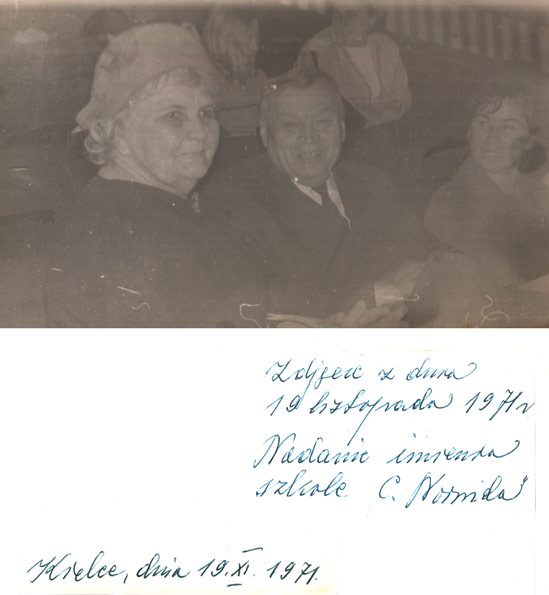 Zdjęcie z dnia
19 listopada 1971 r
Nadanie imienia
szkole C. Norwida"
Kielce, dnia 19.XI. 1971.